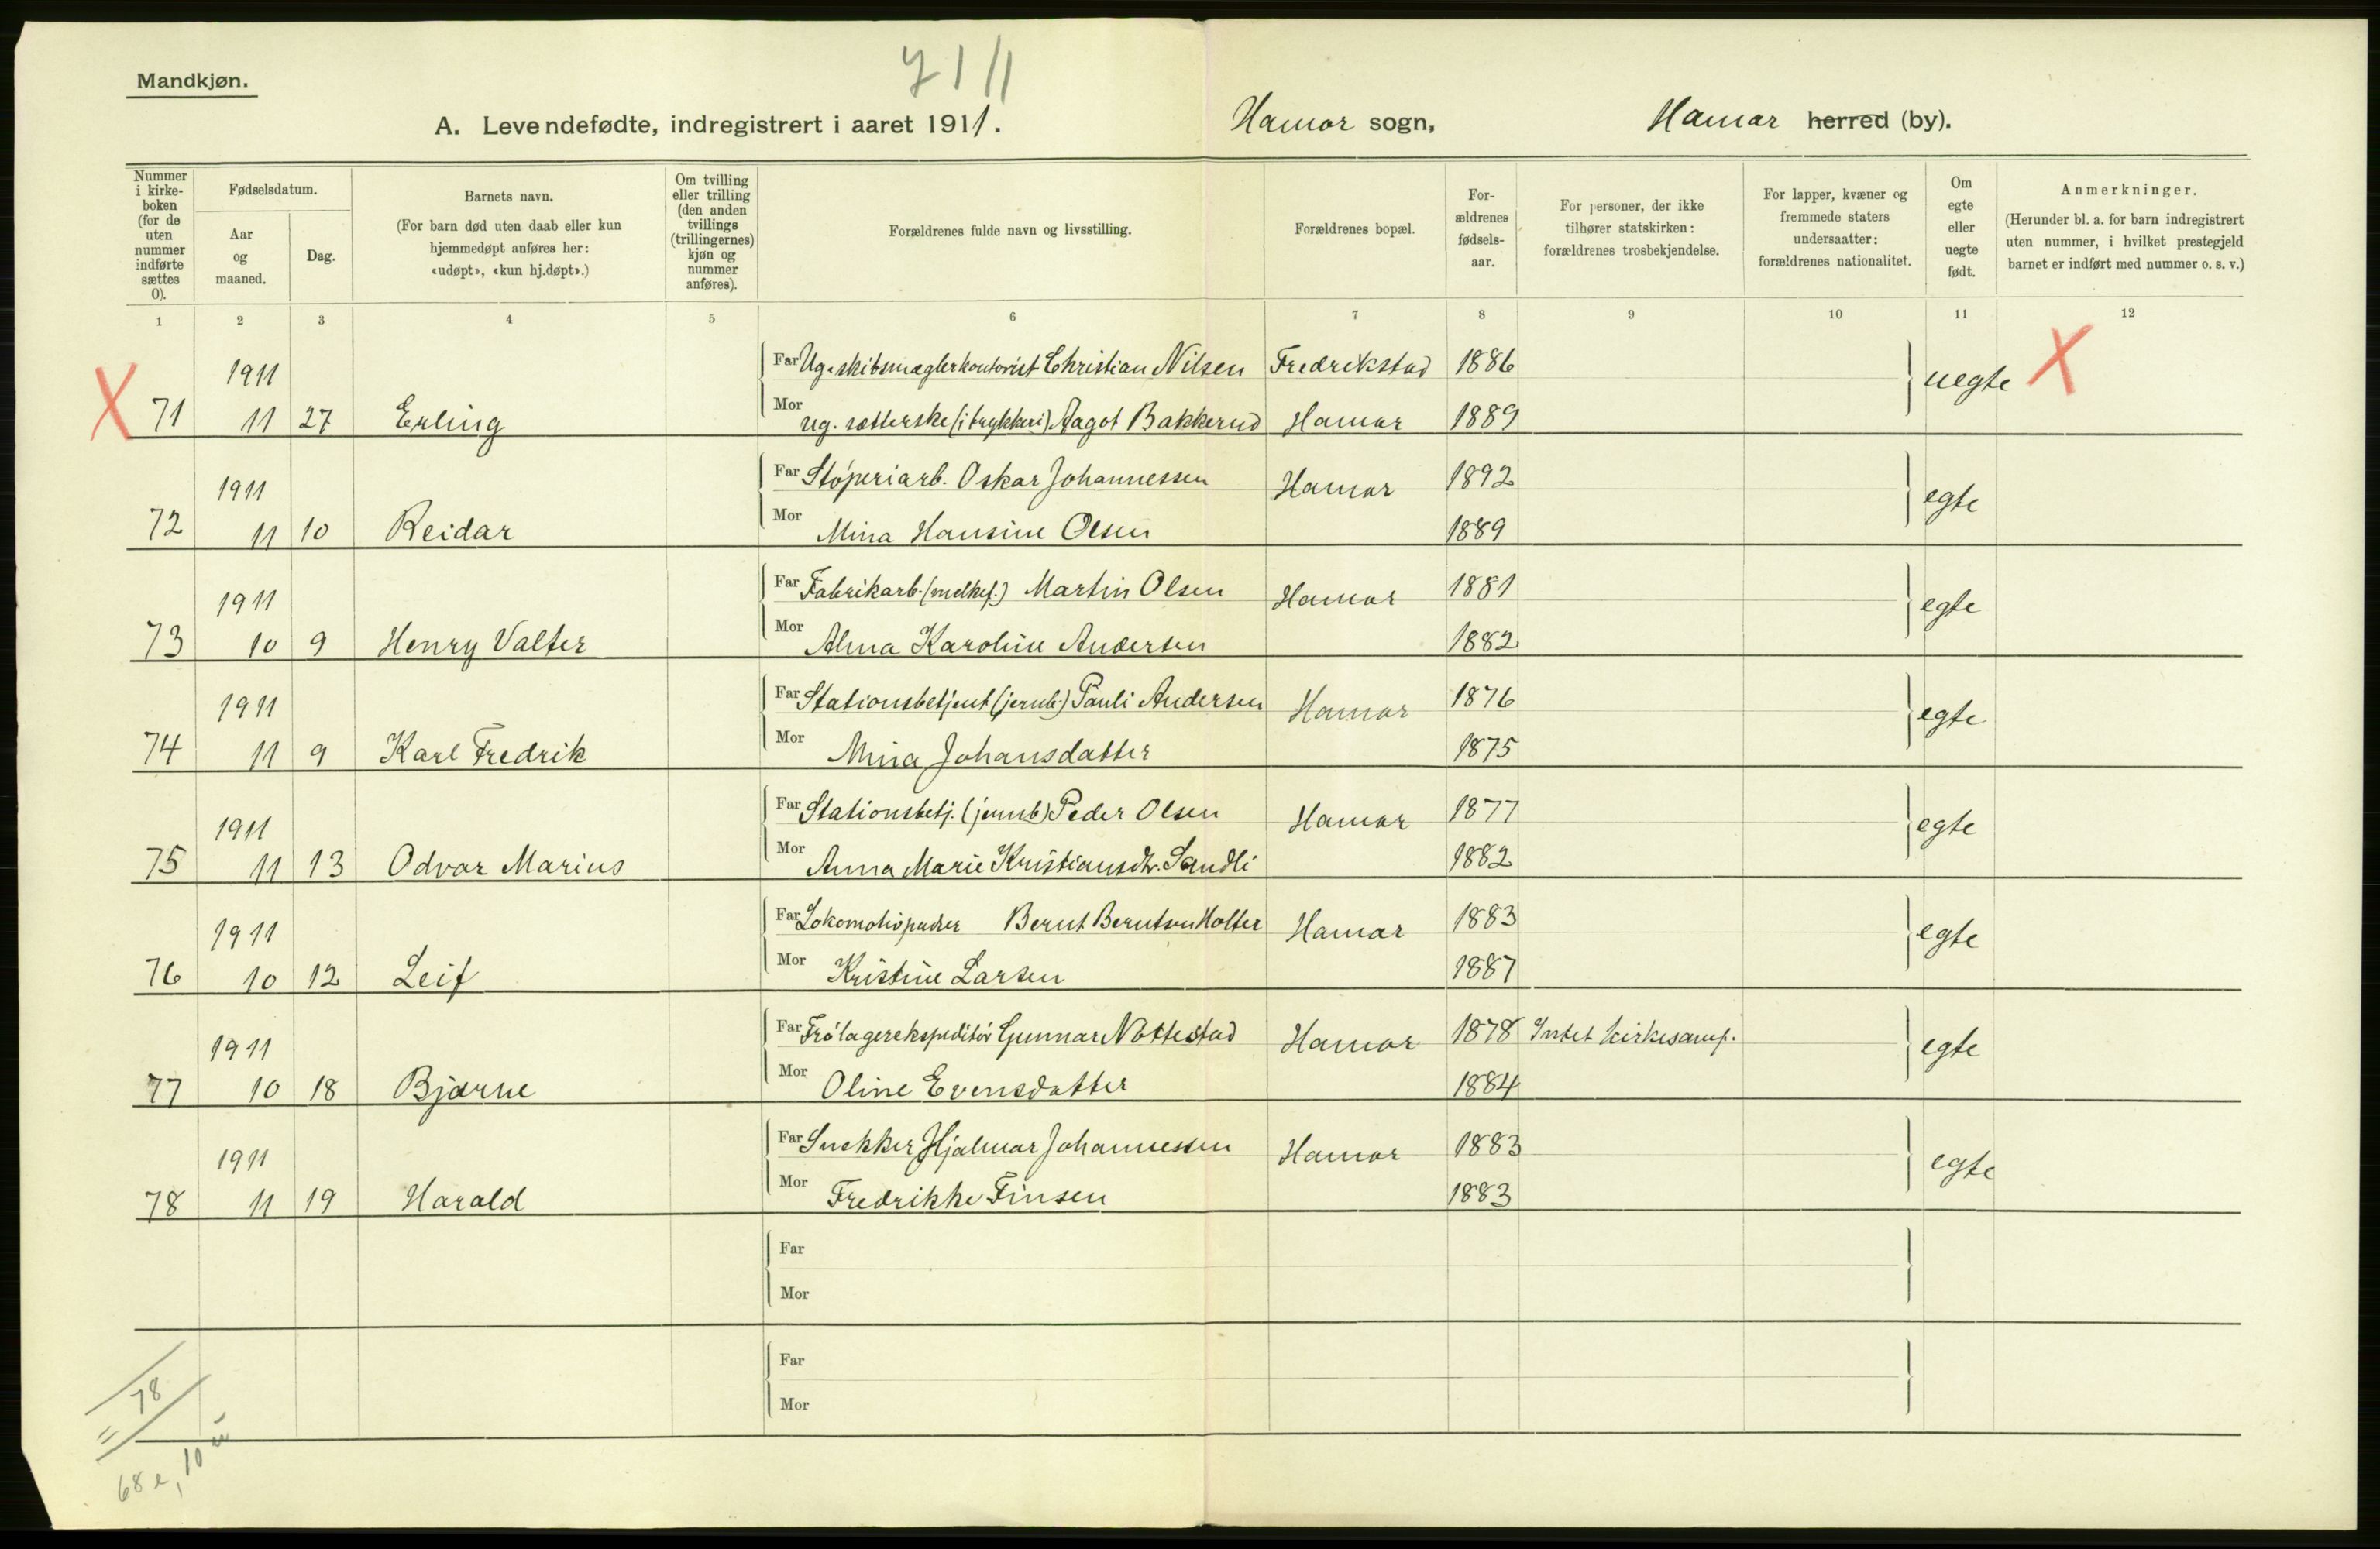 Mandkjøn.
711
A. Levendefødte, indregistrert i aaret 1911. Hamar sogn, Hamar herred (by).
Nummer i kirkeboken (for de uten nummer indførte sættes 0).
Fødselsdatum.
Aar og maaned.
Dag.
Barnets navn.
(For barn død uten daab eller kun hjemmedøpt anføres her: «udøpt», «kun hj.døpt».)
Om tvilling eller trilling (den anden tvillings (trillingernes) kjøn og nummer anføres).
Forældrenes fulde navn og livsstilling.
Forældrenes bopæl.
Forældrenes fødselsaar.
For personer, der ikke tilhører statskirken: forældrenes trosbekjendelse.
For lapper, kvæner og fremmede staters undersaatter: forældrenes nationalitet.
Om egte eller uegte født.
Anmerkninger.
(Herunder bl. a. for barn indregistrert uten nummer, i hvilket prestegjeld barnet er indført med nummer o. s. v.)
1 2 3 4 5 6 7 8 9 10 11 12
X 1911 Far Ug. skibsmæglerkontorist Christian Nilsen Fredrikstad 1886 uegte X
71 11 27 Erling Mor ug. sætterske (i trykkeri) Aagot Bakkerud Hamar 1889
1911 Far Støperiarb. Oskar Johannessen Hamar 1892 egte
72 11 10 Reidar Mor Mina Hansine Olsen 1889
1911 Far Fabrikarb. (melkef.) Martin Olsen Hamar 1881 egte
73 10 9 Henry Valter Mor Alma Karoline Andersen 1882
1911 Far Stationsbetjent (jernb.) Pauli Andersen Hamar 1876 egte
74 11 9 Karl Fredrik Mor Mina Johansdatter 1875
1911 Far Stationsbetj. (jernb) Peder Olsen Hamar 1877 egte
75 11 13 Odvar Marius Mor Anna Marie Kristiansdtr. Sandli 1882
1911 Far Lokomotivpudser Bernt Berntsen Holter Hamar 1883 egte
76 10 12 Leif Mor Kristine Larsen 1887
1911 Far Frölagerekspeditör Gunnar Nottestad Hamar 1878 Intet kirkesamf. egte
77 10 18 Bjarne Mor Oline Evensdatter 1884
1911 Far Snekker Hjalmar Johannessen Hamar 1883 egte
78 11 19 Harald Mor Fredrikke Finsen 1883
Far
Mor
Far
Mor
= 78
68 e, 10 u